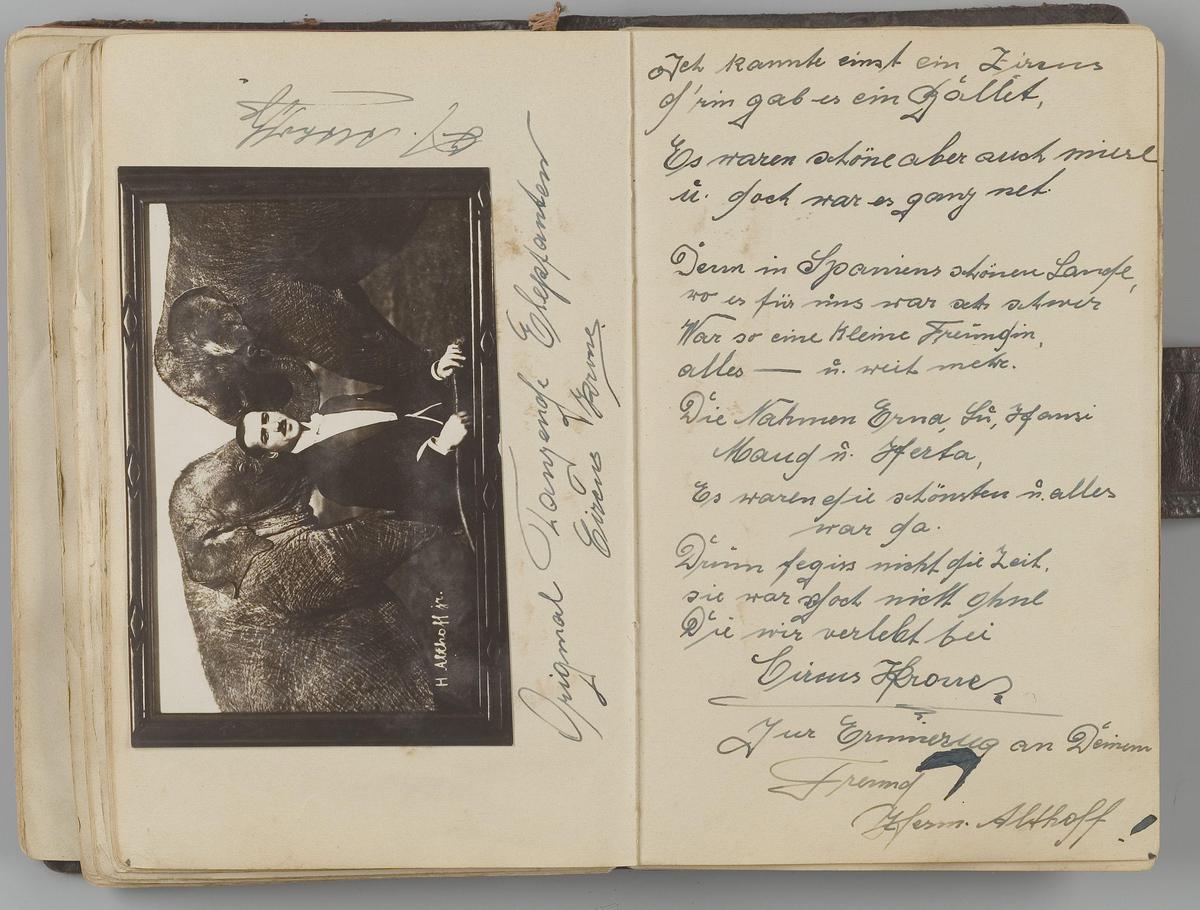 H Althoff jr.
Original Tanzende Elephanten
Circus Krone.
Ich kannte einst ein Zircus
d'rin gab es ein Ballet,
Es waren schöne aber auch miese
u. doch war es ganz net.
Denn in Spaniens schönen Lande,
wo es für uns war sch schwer
War so eine kleine Freundin,
alles — u. weit mehr.
Die Nahmen Erna, Lu, Hansi
Maud u. Herta,
Es waren die schönsten u. alles
war da.
Drum fegiss nicht die Zeit,
sie war doch nicht ohne
Die wir verlebt bei
Circus Krone.
Zur Erinnerug an Deinem
Freund
Herm. Althoff!